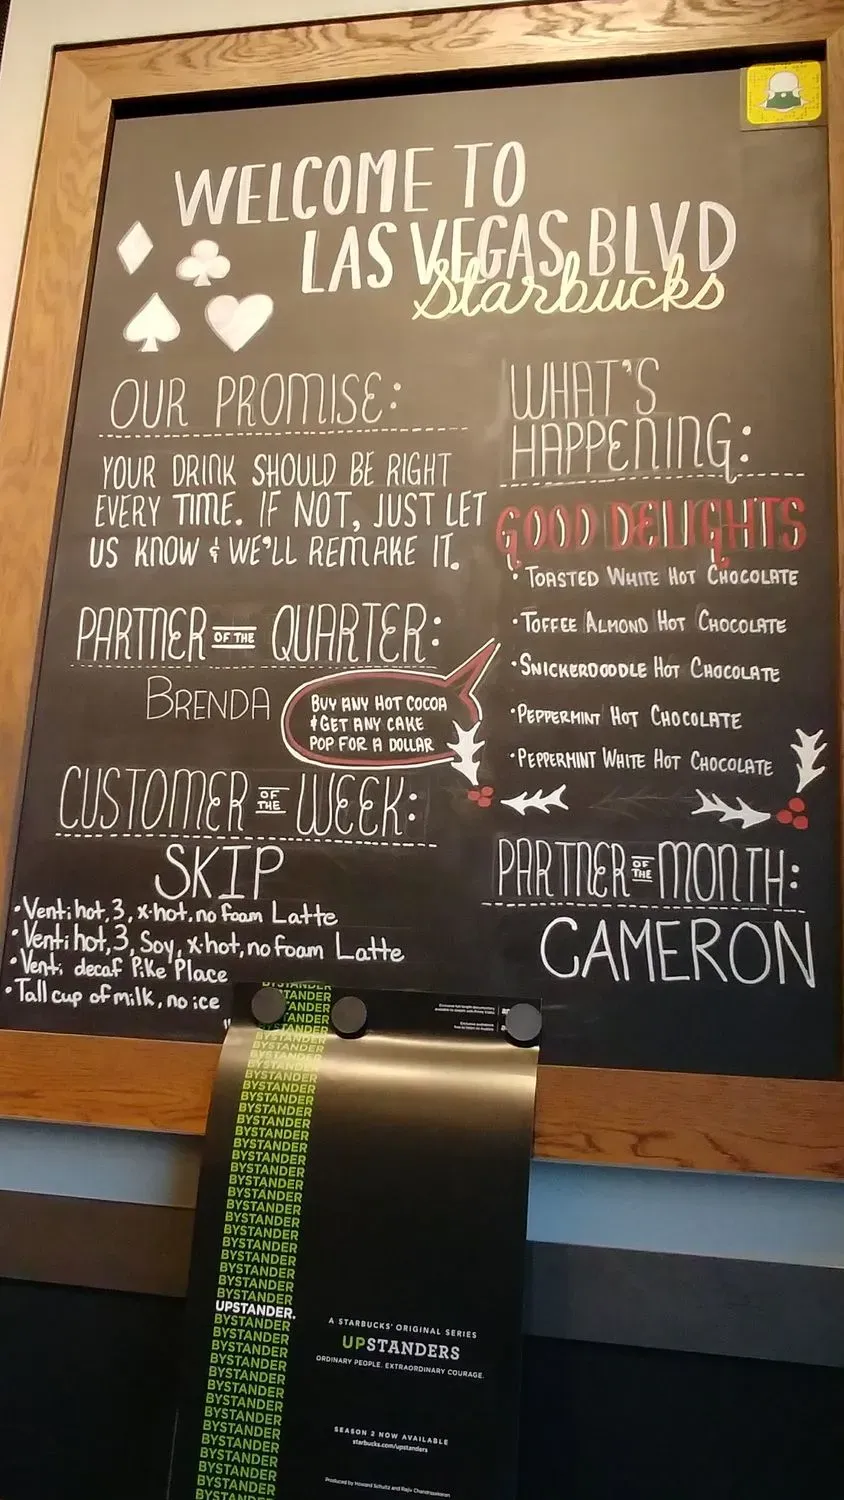 WELCOME TO
LAS VEGAS BLVD
Starbucks
OUR PROMISE:
YOUR DRINK SHOULD BE RIGHT
EVERY TIME. IF NOT, JUST LET
US KNOW & WE'LL REMAKE IT.
PARTNER OF THE QUARTER:
BRENDA
BUY ANY HOT COCOA
& GET ANY CAKE
POP FOR A DOLLAR
CUSTOMER OF THE WEEK:
SKIP
• Venti hot, 3, x-hot, no foam Latte
• Venti hot, 3, Soy, x-hot, no foam Latte
• Venti decaf Pike Place
• Tall cup of milk, no ice
WHAT'S
HAPPENING:
GOOD DELIGHTS
• TOASTED WHITE HOT CHOCOLATE
• TOFFEE ALMOND HOT CHOCOLATE
• SNICKERDOODLE HOT CHOCOLATE
• PEPPERMINT HOT CHOCOLATE
• PEPPERMINT WHITE HOT CHOCOLATE
PARTNER OF THE MONTH:
CAMERON
BYSTANDER
BYSTANDER
BYSTANDER
BYSTANDER
BYSTANDER
BYSTANDER
BYSTANDER
BYSTANDER
BYSTANDER
BYSTANDER
BYSTANDER
BYSTANDER
BYSTANDER
BYSTANDER
BYSTANDER
BYSTANDER
BYSTANDER
BYSTANDER
BYSTANDER
BYSTANDER
BYSTANDER
BYSTANDER
BYSTANDER
BYSTANDER
BYSTANDER
BYSTANDER
UPSTANDER.
BYSTANDER
BYSTANDER
BYSTANDER
BYSTANDER
BYSTANDER
BYSTANDER
BYSTANDER
BYSTANDER
BYSTANDER
BYSTANDER
BYSTANDER
BYSTANDER
BYSTANDER
BYSTANDER
A STARBUCKS' ORIGINAL SERIES
UPSTANDERS
ORDINARY PEOPLE. EXTRAORDINARY COURAGE.
SEASON 2 NOW AVAILABLE
starbucks.com/upstanders
Produced by Howard Schultz and Rajiv Chandrasekaran